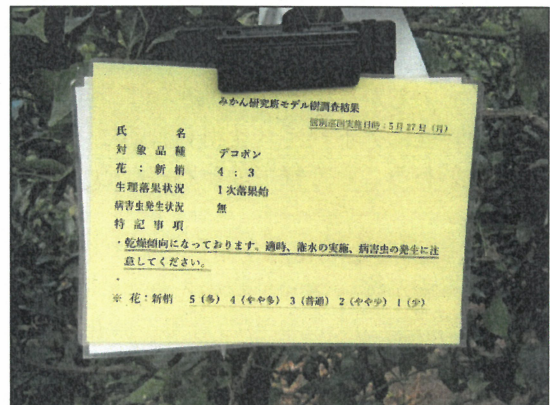 みかん研究班モデル樹調査結果
個別巡回実施日時：5月27日（月）
氏　　名
対象品種　デコポン
花：新梢　4：3
生理落果状況　1次落果始
病害虫発生状況　無
特記事項
・乾燥傾向になっております。適時、灌水の実施、病害虫の発生に注
意してください。
・
※ 花：新梢　5（多） 4（やや多） 3（普通） 2（やや少） 1（少）